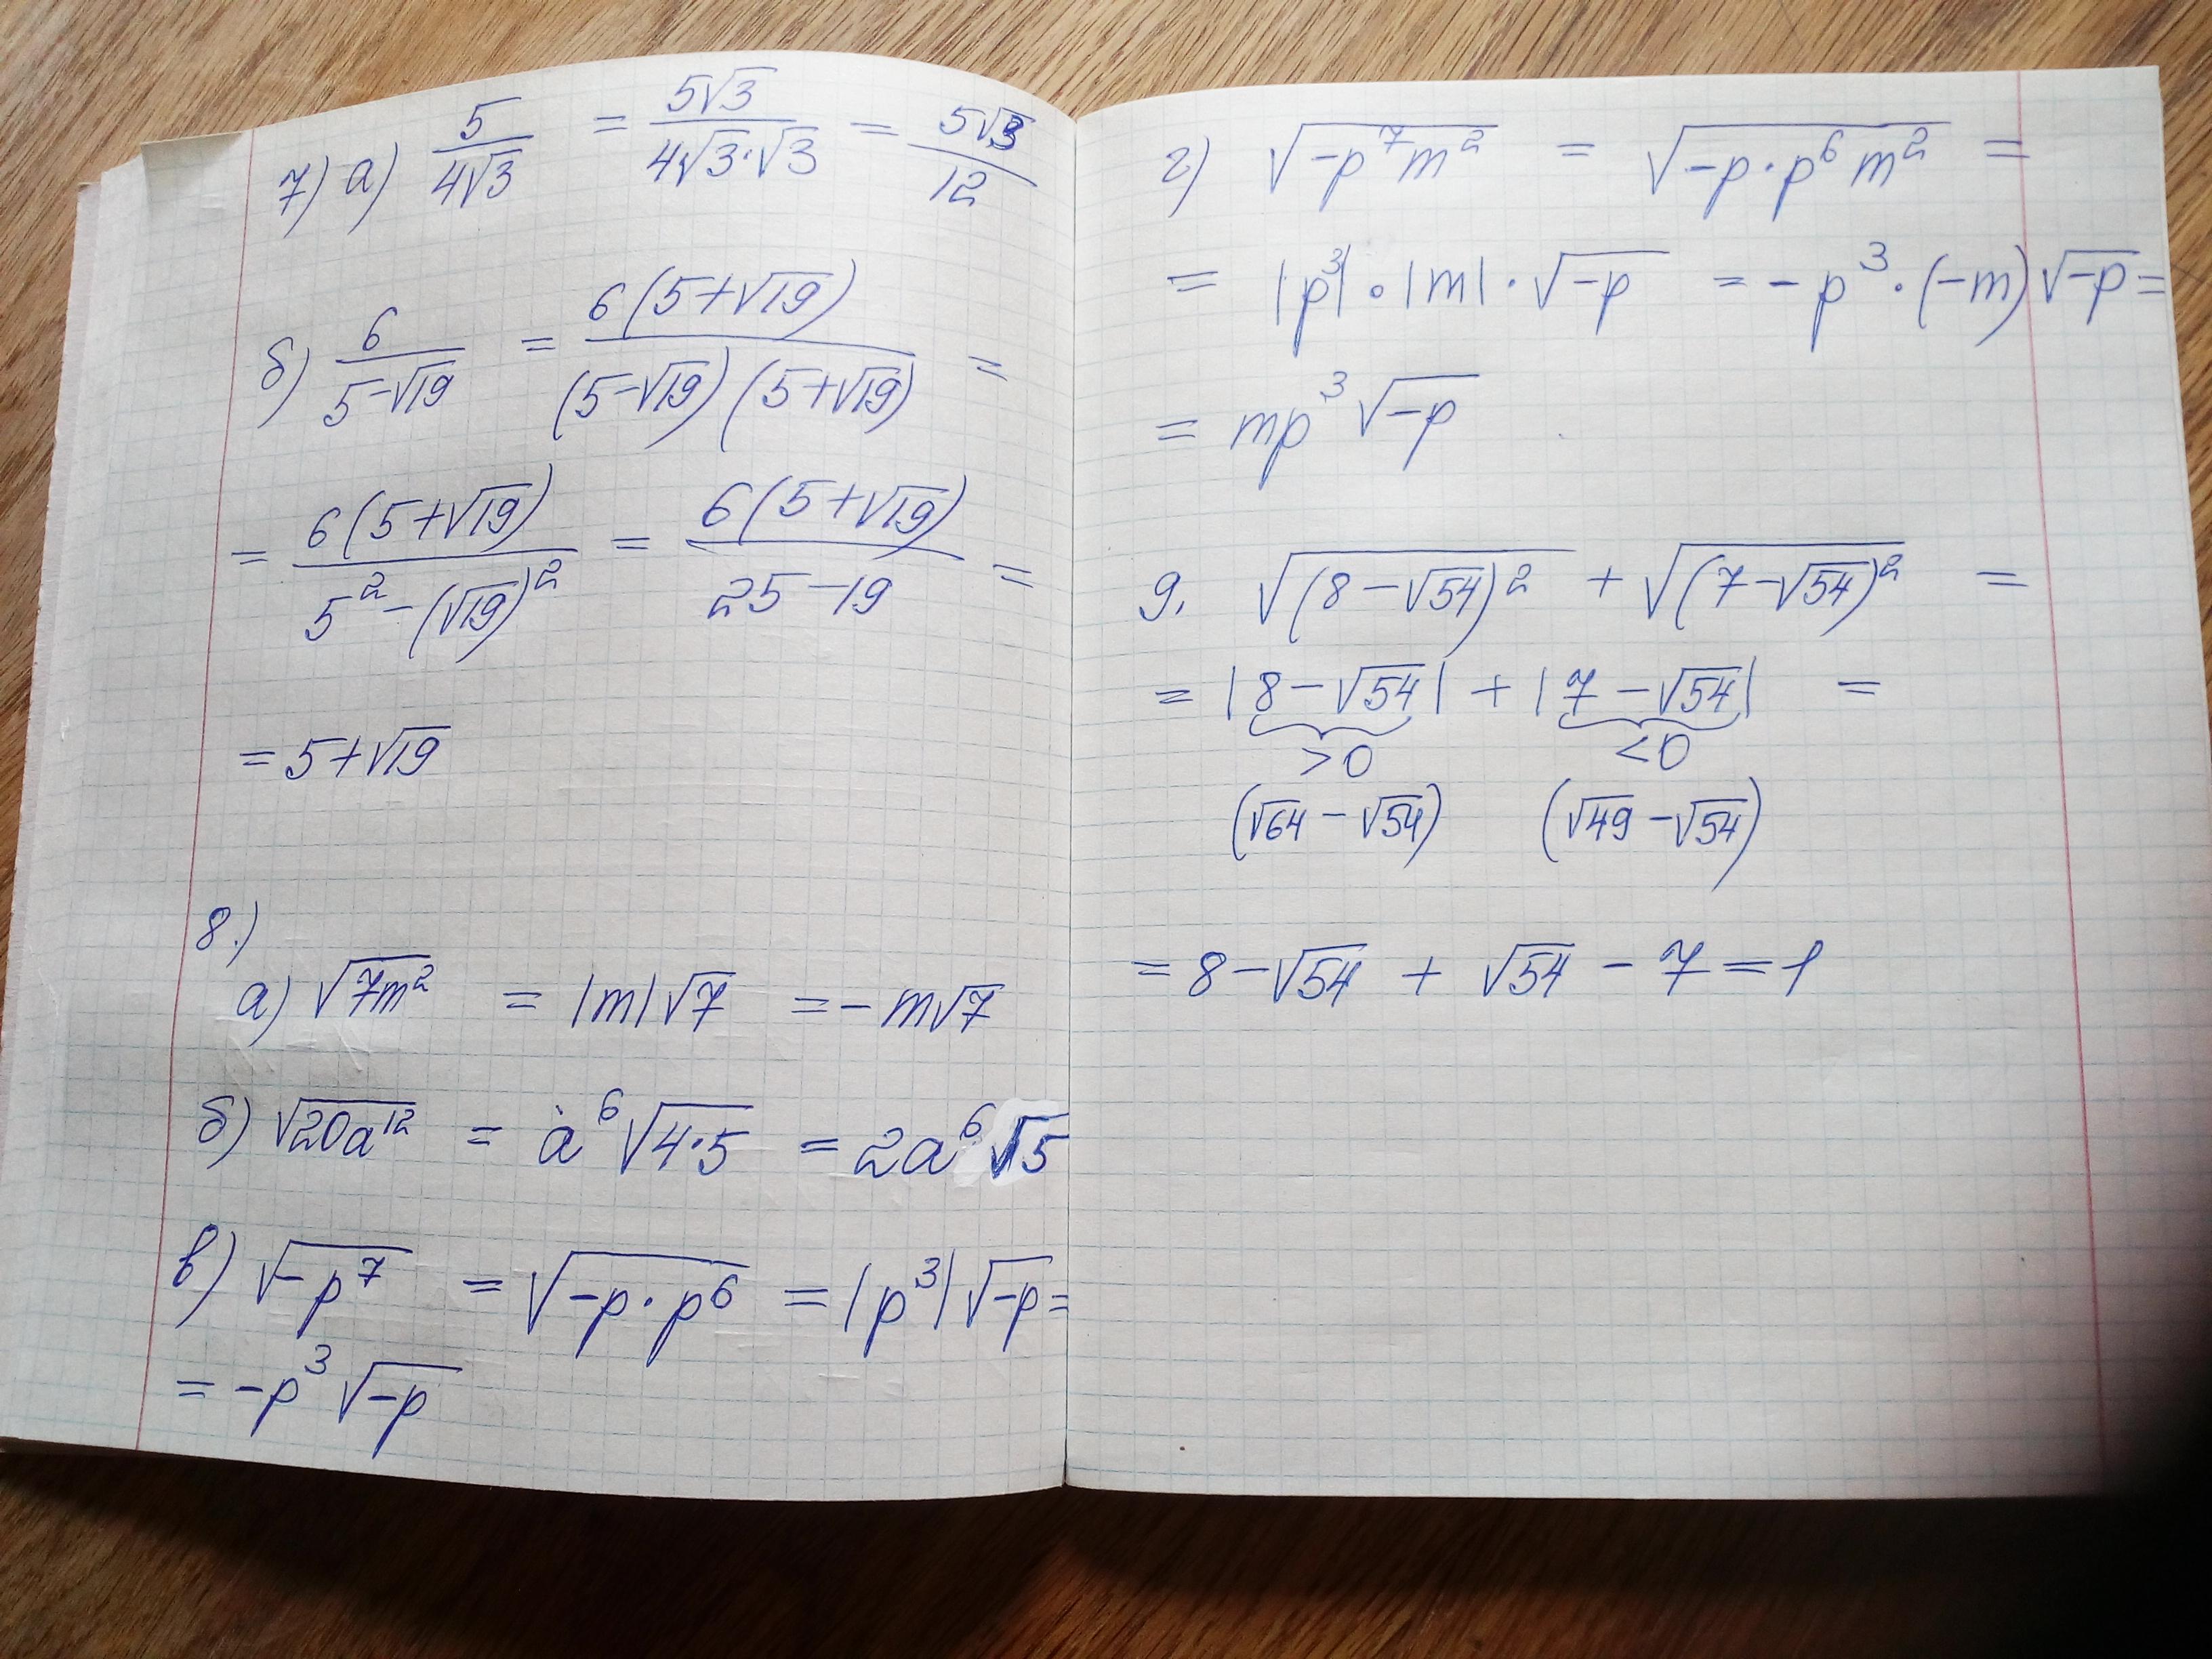 7) а) 5/(4√3) = 5√3/(4√3·√3) = 5√3/12
б) 6/(5-√19) = 6(5+√19)/((5-√19)(5+√19)) =
= 6(5+√19)/(5²-(√19)²) = 6(5+√19)/(25-19) =
= 5+√19
8.)
а) √(7m²) = |m|√7 = -m√7
б) √(20a¹²) = a⁶√(4·5) = 2a⁶√5
в) √(-p⁷) = √(-p·p⁶) = |p³|√(-p) =
= -p³√(-p)
г) √(-p⁷m²) = √(-p·p⁶m²) =
= |p³|·|m|·√(-p) = -p³·(-m)√(-p) =
= mp³√(-p)
9. √((8-√54)²) + √((7-√54)²) =
= |8-√54| + |7-√54| =
>0 <0
(√64-√54) (√49-√54)
= 8-√54 + √54-7=1